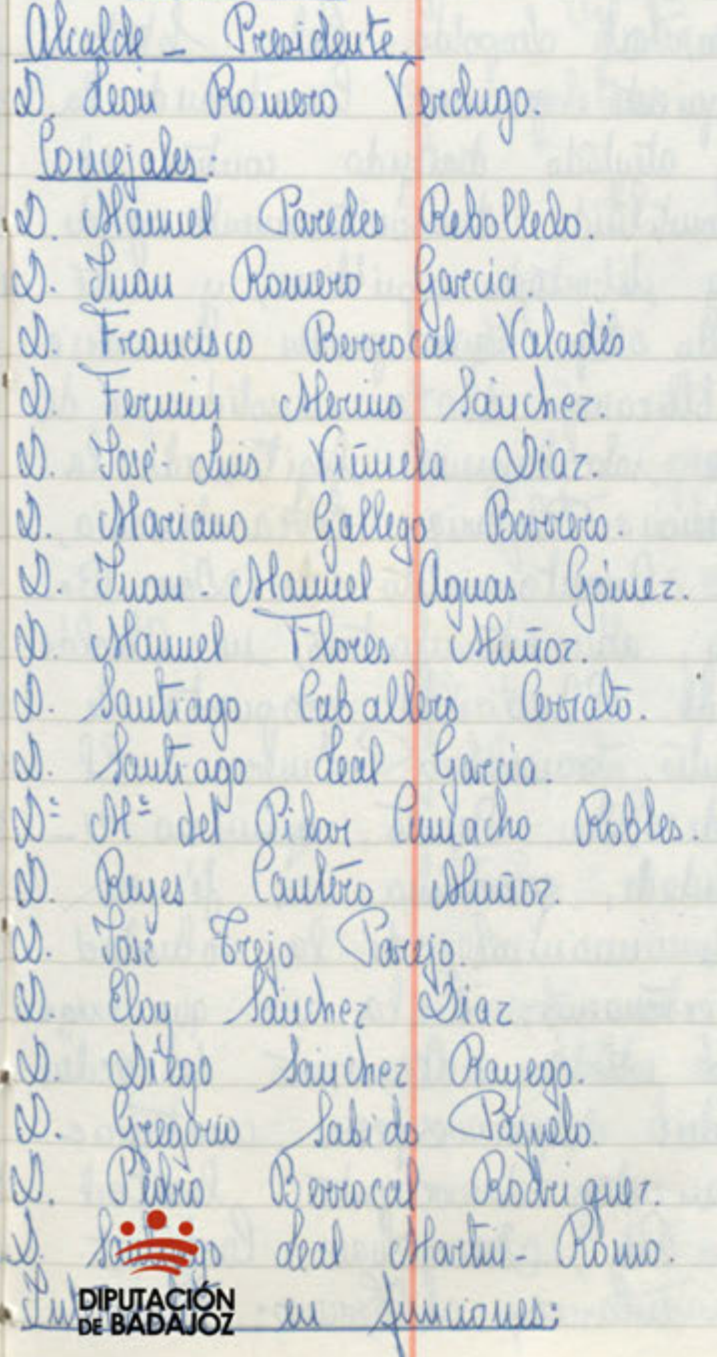 Alcalde - Presidente
D. Leon Romero Verdugo.
Concejales:
D. Manuel Paredes Rebolledo.
D. Juan Romero García.
D. Francisco Berrocal Valadés
D. Fermin Merino Sánchez.
D. José-Luis Viñuela Díaz.
D. Mariano Gallego Barrero.
D. Juan-Manuel Aguas Gómez.
D. Manuel Flores Muñoz.
D. Santiago Caballero Cerrato.
D. Santiago Leal García.
Dª Mª del Pilar Camacho Robles.
D. Reyes Cantero Muñoz.
D. José Trejo Parejo.
D. Eloy Sánchez Díaz
D. Diego Sánchez Rayego.
D. Gregorio Sabido
D. Pedro Berrocal Rodríguez.
D. Santiago Leal Martin-Romo.
en funciones:
DIPUTACIÓN
DE BADAJOZ